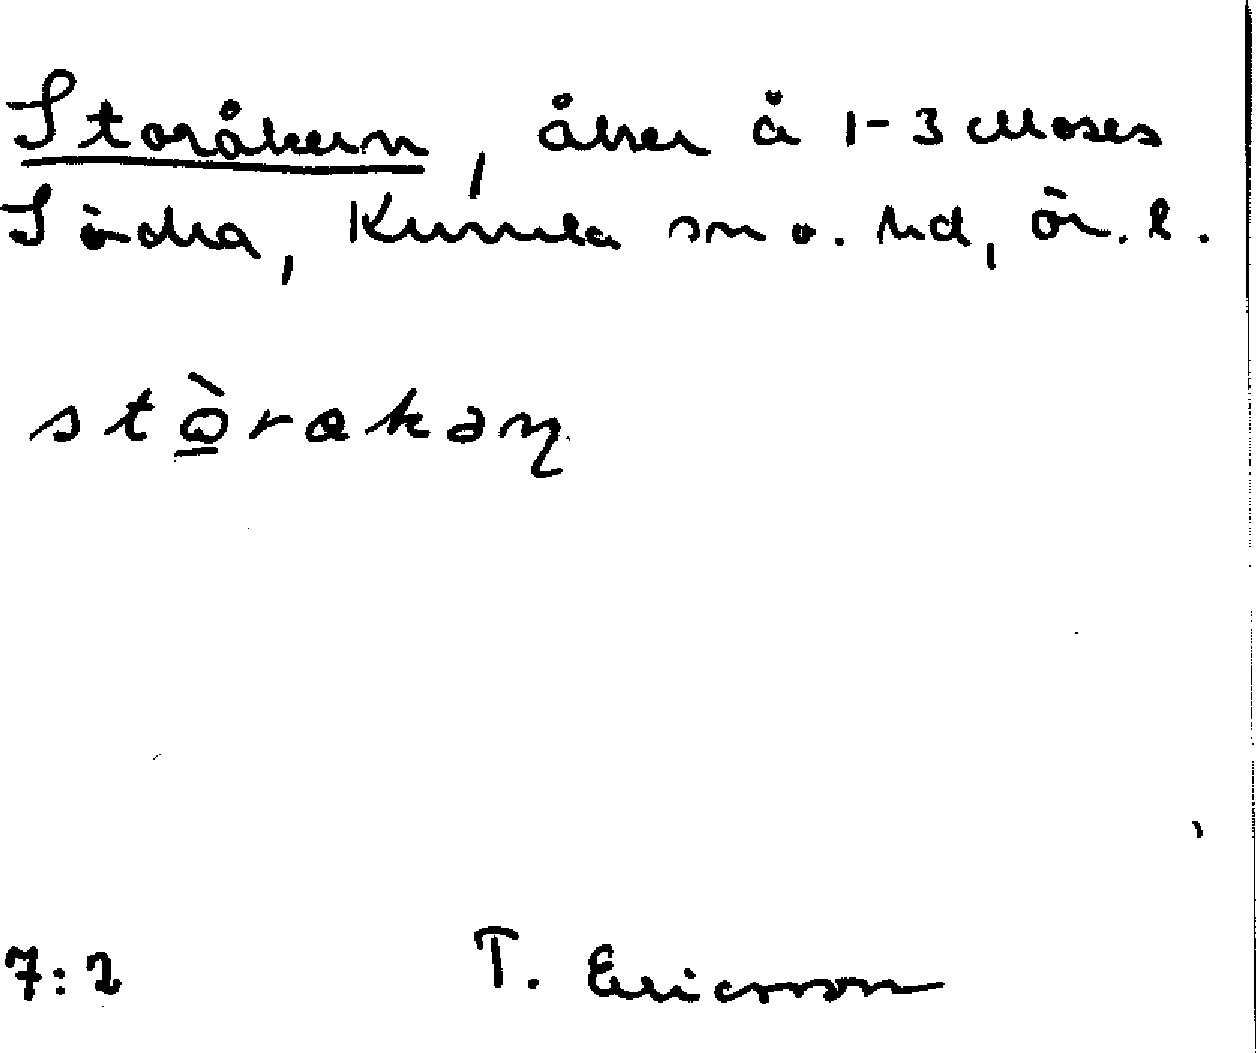 Storåkern, åker å 1-3 Moses
Södra, Kumla sn o. hd, Ör. l.
stò̱rakəη
7:2 T. Ericsson